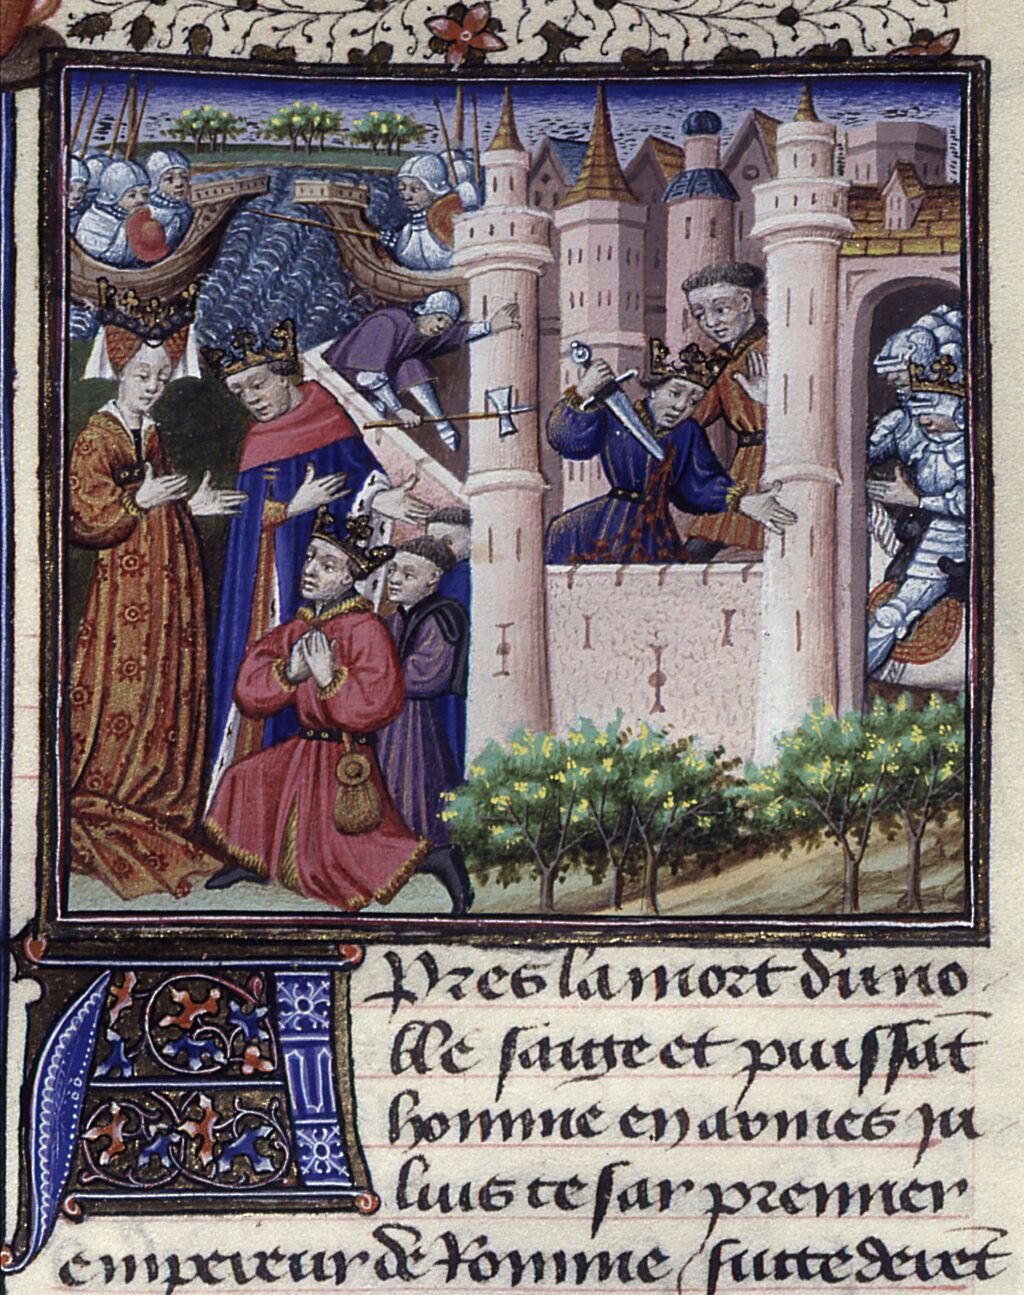 Apres la mort du no
ble saige et puissāt
homme en armes Ju
lius cesar premier
empereur de Romme